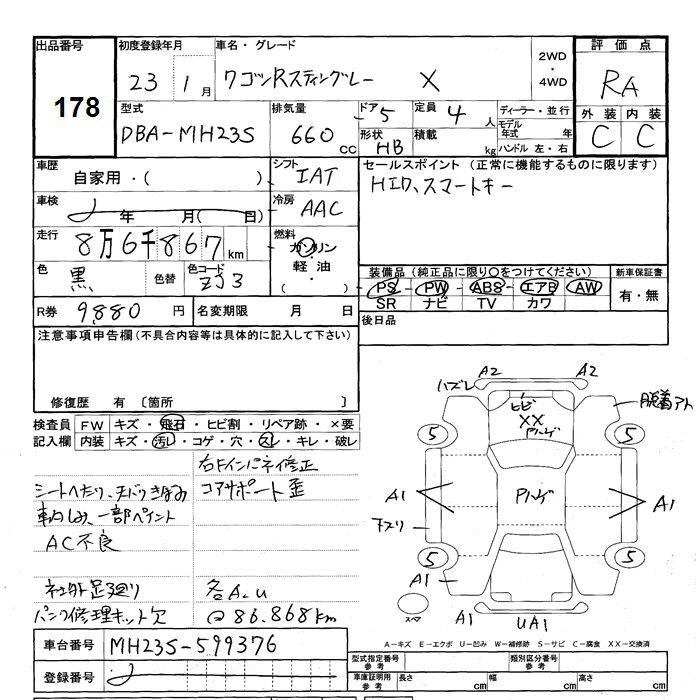 出品番号
178
初度登録年月
23 1月
車名・グレード
ワゴンRスティングレー X
2WD
・
4WD
評価点
RA
外装 内装
C C
型式
DBA-MH23S
排気量
660 cc
ドア 5
形状 HB
定員 4 人
積載 kg
ディーラー・並行
モデル年式 年
ハンドル 左・右
車歴
自家用・( )
シフト
IAT
車検
年 月( )
冷房
AAC
走行
8万6千867km
燃料
ガソリン
・
軽油
・
( )
色
黒
色替
色コード
ZJ3
R券 9,880 円
名変期限 月 日
セールスポイント (正常に機能するものに限ります)
HID、スマートキー
装備品 (純正品に限り○をつけてください)
PS PW ABS エアB AW
SR ナビ TV カワ
新車保証書
有・無
後日品
注意事項申告欄(不具合内容等は具体的に記入して下さい)
修復歴 有 〔箇所 〕
検査員 FW キズ・飛石・ヒビ割・リペア跡・×要
記入欄 内装 キズ・汚レ・コゲ・穴・スレ・キレ・破レ
右Fインパネ修正
コアサポート歪
シートヘタリ、天バリきばみ
車内しみ、一部ペイント
AC不良
社外足廻り
各A.U
パンク修理キット欠
@86.868km
車台番号 MH23S-599376
登録番号
ハズレ
A2
A2
脱着アト
ヒビ
XX
ハゲ
5
5
ハゲ
A1
A1
5
5
A1
スペア
A1
UA1
A-キズ E-エクボ U-凹み W-補修跡 S-サビ C-腐食 XX-交換済
型式指定番号 参考
類別区分番号 参考
車庫証明用 参考
長さ cm
幅 cm
高さ cm